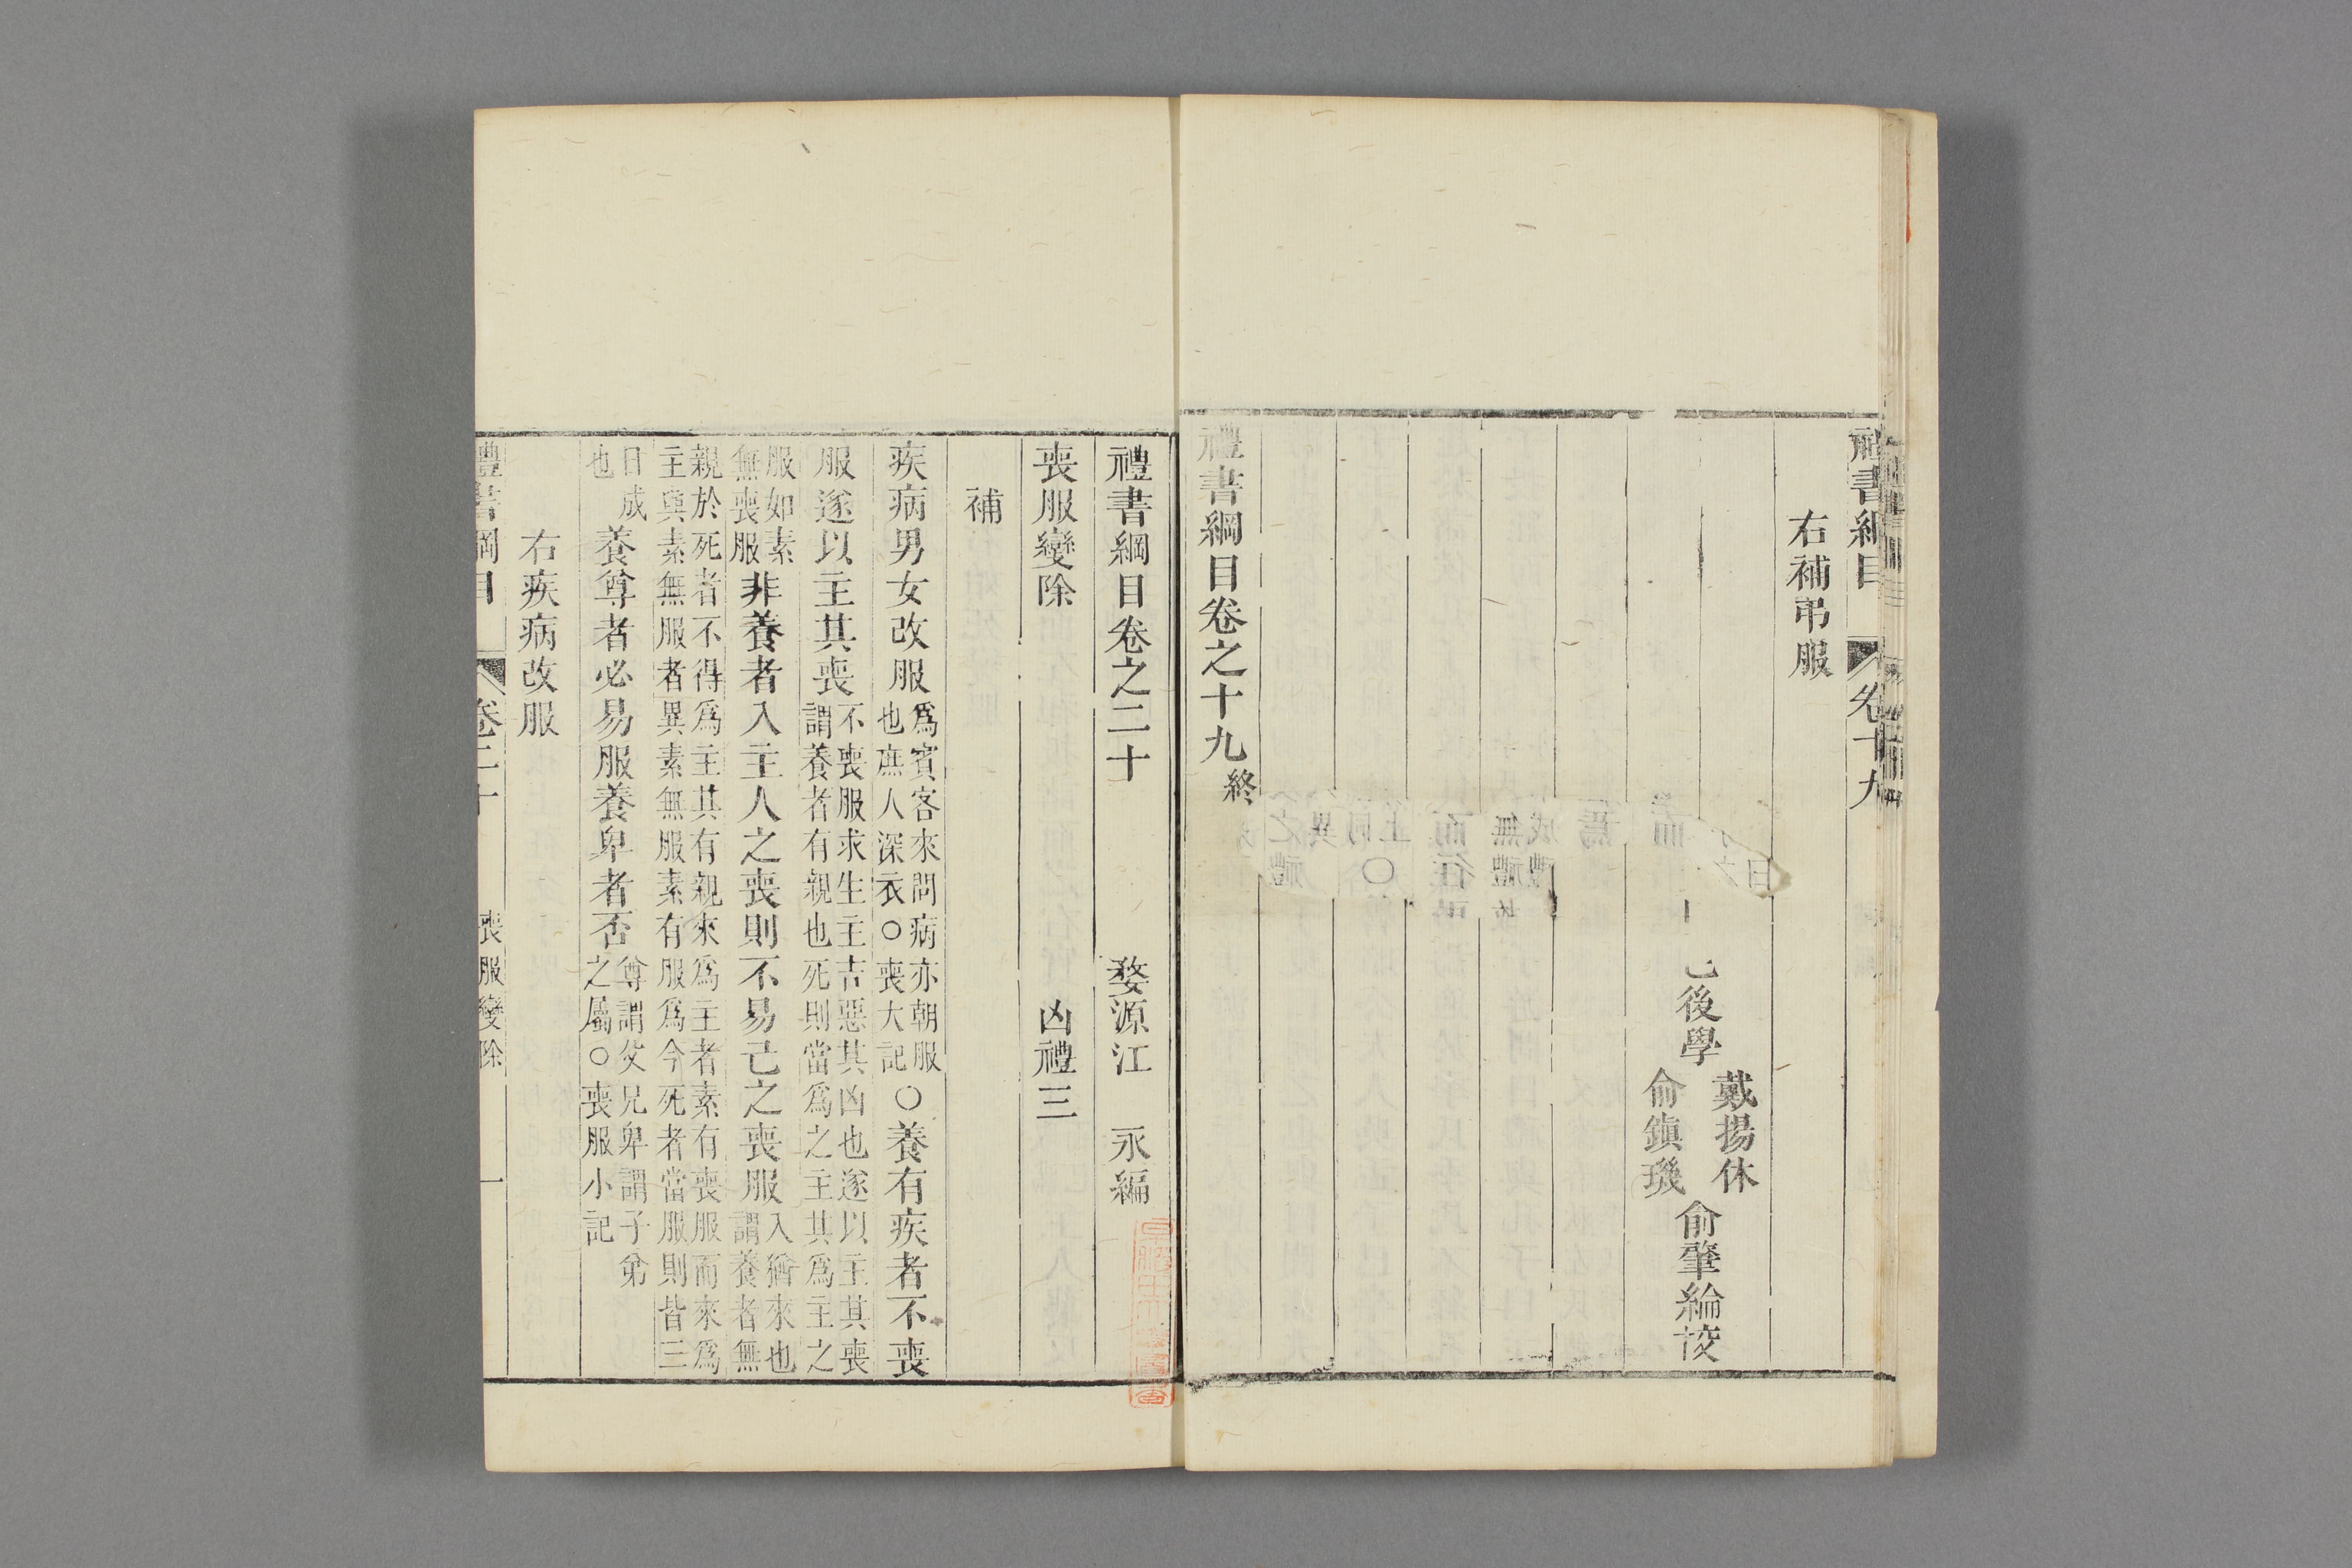 禮書綱目 卷十九
右補弔服
後學 戴揚休 俞鎮璣 俞肇綸校
禮書綱目卷之十九終
禮書綱目卷之二十 婺源江 永編
喪服變除 凶禮三
補
疾病男女改服爲賓客來問病亦朝服也庶人深衣○喪大記○養有疾者不喪
服遂以主其喪不喪服求生主吉惡其凶也遂以主其喪謂養者有親也死則當爲之主其爲主之
服如素無喪服非養者入主人之喪則不易己之喪服入猶來也謂養者無
親於死者不得爲主其有親來爲主者素有喪服而來爲主與素無服者異素無服素有服爲今死者當服則皆三
日成也養尊者必易服養卑者否尊謂父兄卑謂子弟之屬○喪服小記
右疾病改服
禮書綱目 卷二十 喪服變除 一